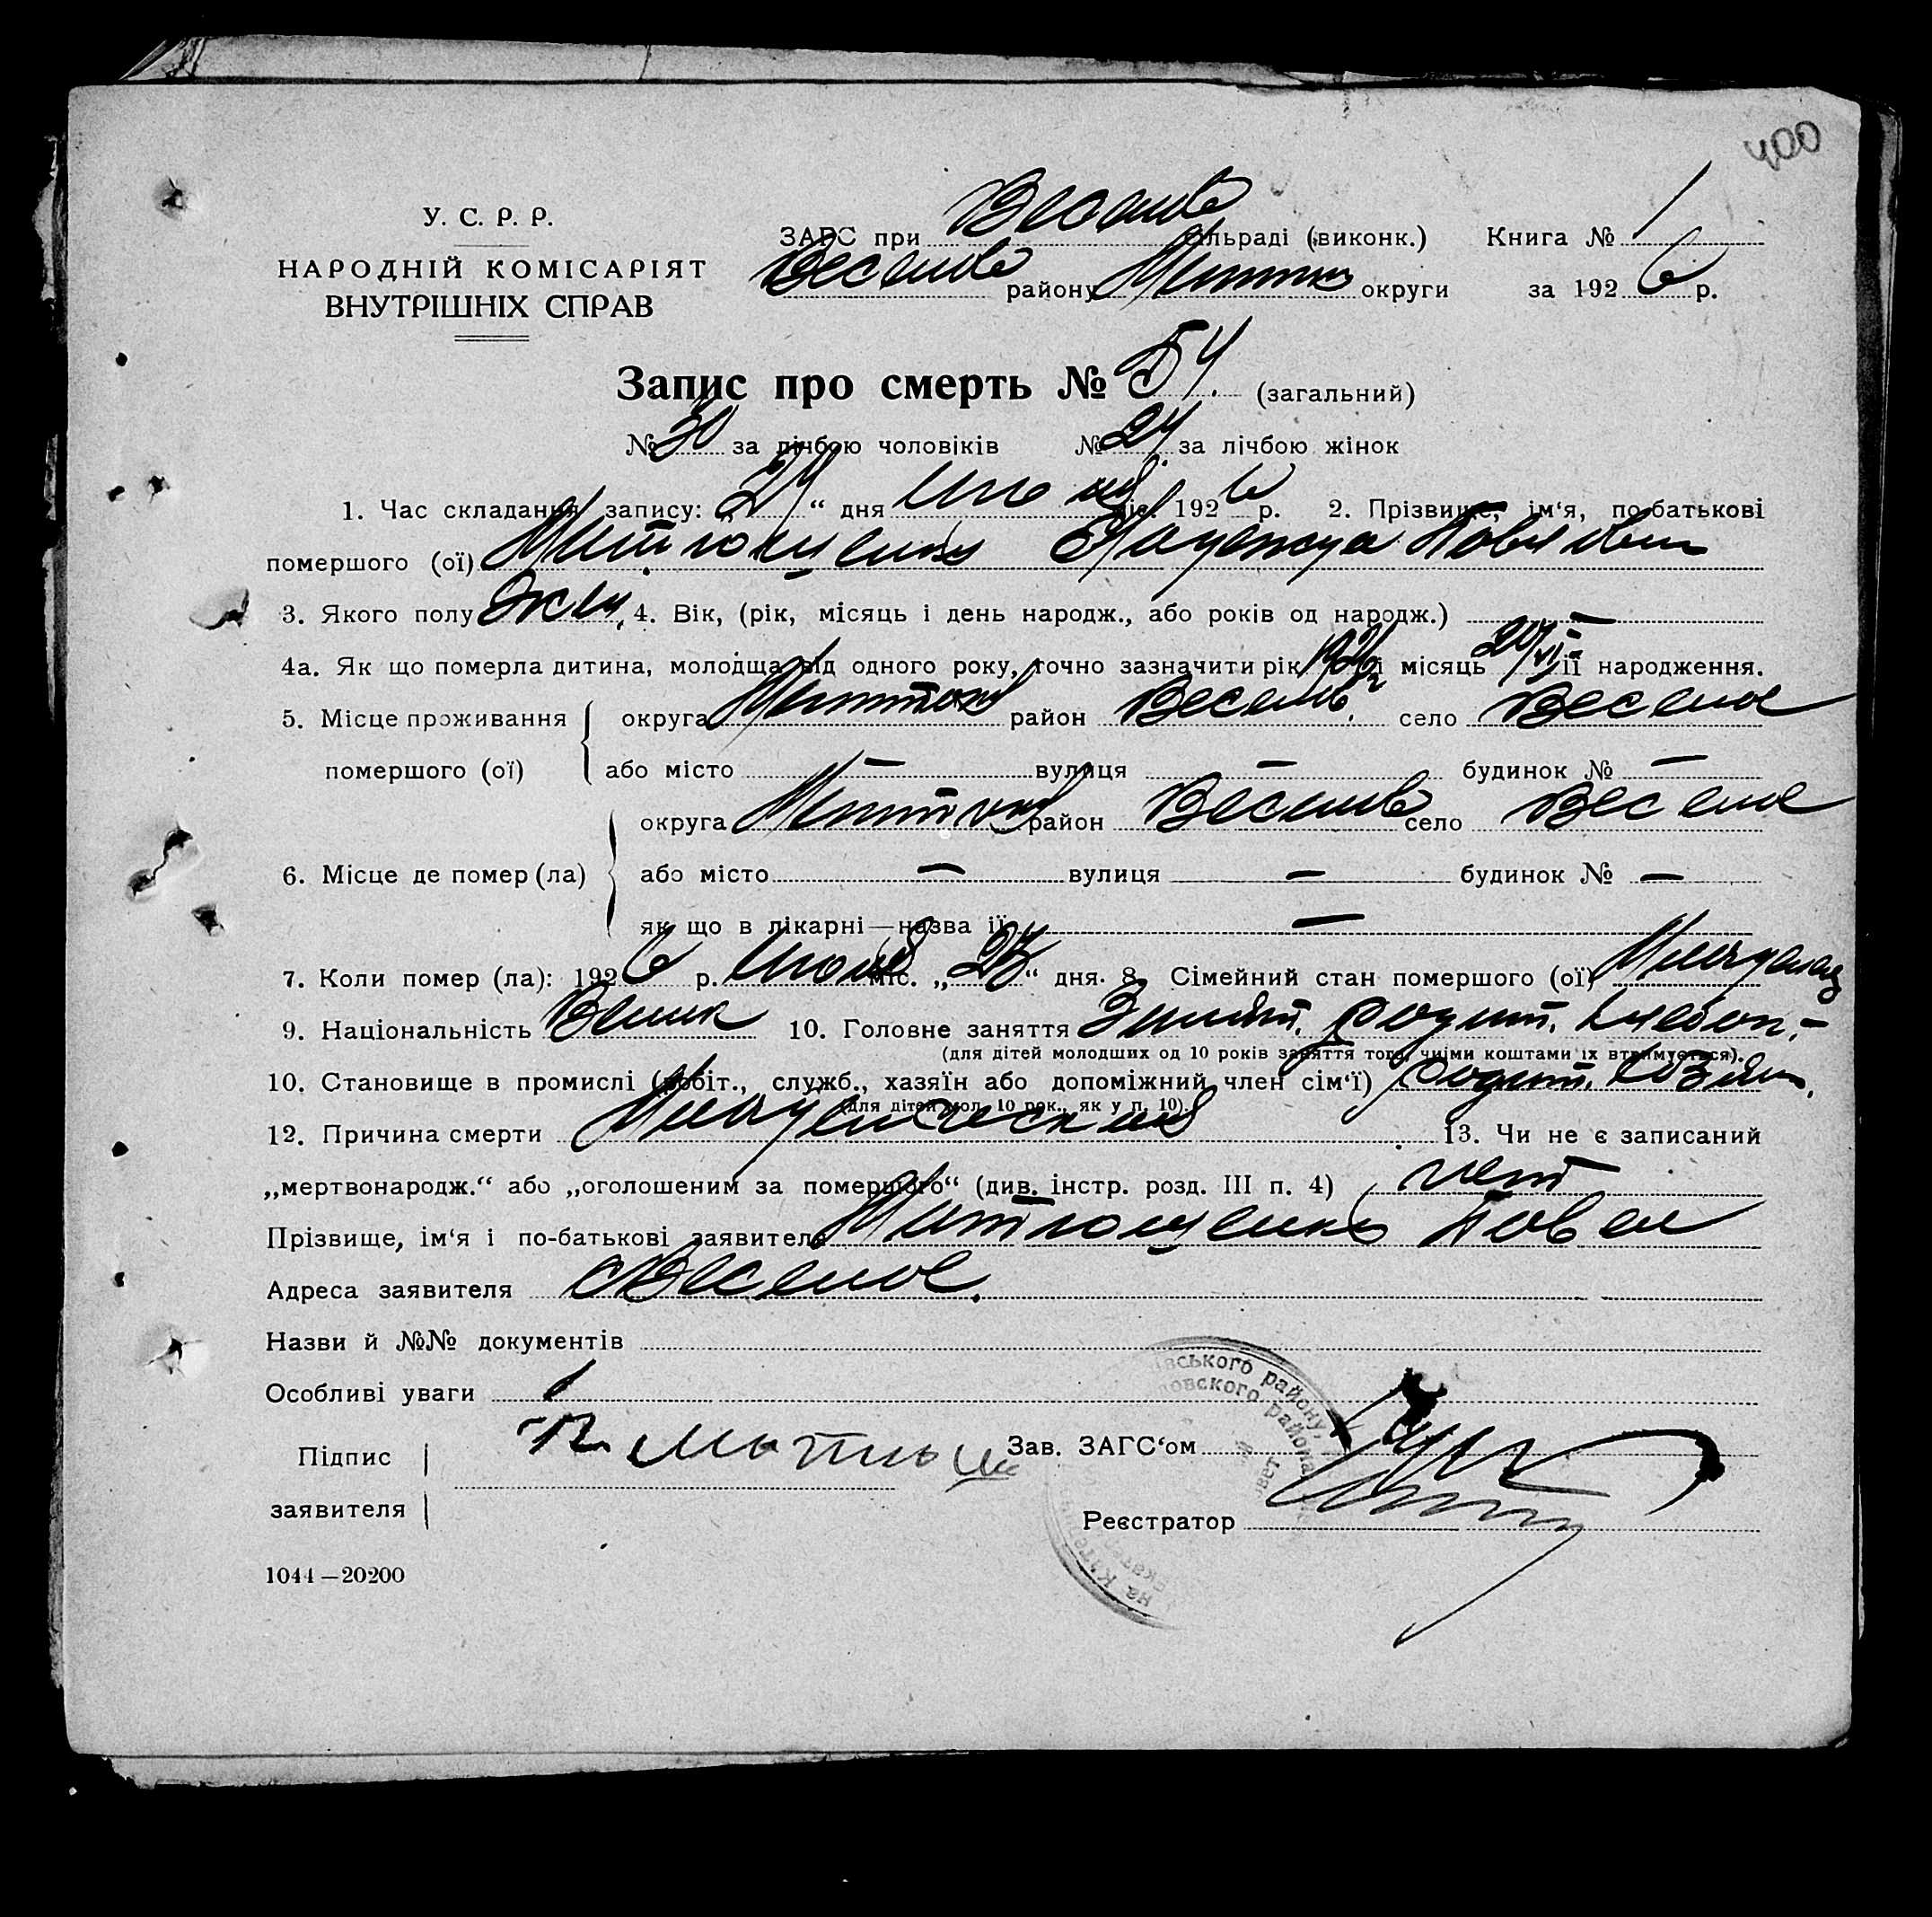 400
У. С. Р. Р.
НАРОДНІЙ КОМІСАРІЯТ
ВНУТРІШНІХ СПРАВ
ЗАГС при Веселов сільраді (виконк.) Книга № 1
Веселов району округи за 1926 р.
Запис про смерть № 54. (загальний)
№ 30 за лічбою чоловіків № 24 за лічбою жінок
1. Час складання запису: „24“ дня міс. 1926 р. 2. Прізвище, ім‘я, по-батькові
помершого (ої) Надежда Павловна
3. Якого полу жен. 4. Вік, (рік, місяць і день народж., або років од народж.) —
4а. Як що померла дитина, молодща від одного року, точно зазначити рік і місяць її народження.
5. Місце проживання округа район Веселов. село Веселое
помершого (ої) або місто — вулиця — будинок № —
округа район Веселов село Веселое
6. Місце де помер (ла) або місто — вулиця — будинок № —
як що в лікарні—назва її —
7. Коли помер (ла): 1926 р. міс. „23“ дня. 8. Сімейний стан помершого (ої) Младенец
9. Національність 10. Головне заняття родит. хлебоп.-
(для дітей молодших од 10 років заняття того, чиїми коштами їх втримується).
10. Становище в промислі (робіт., служб., хазяїн або допоміжний член сім‘ї) родит. хозяин.
(для дітей мол. 10 рок., як у п. 10).
12. Причина смерти Младенческая 13. Чи не є записаний
„мертвонародж.“ або „оголошеним за помершого“ (див. інстр. розд. III п. 4) нет
Прізвище, ім‘я і по-батькові заявителя Павел
Адреса заявителя с Веселое.
Назви й №№ документів
Особливі уваги
Підпис
заявителя
Зав. ЗАГС‘ом
Реєстратор
1044—20200